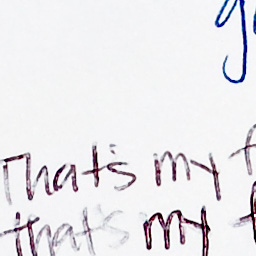 That's my
that's my